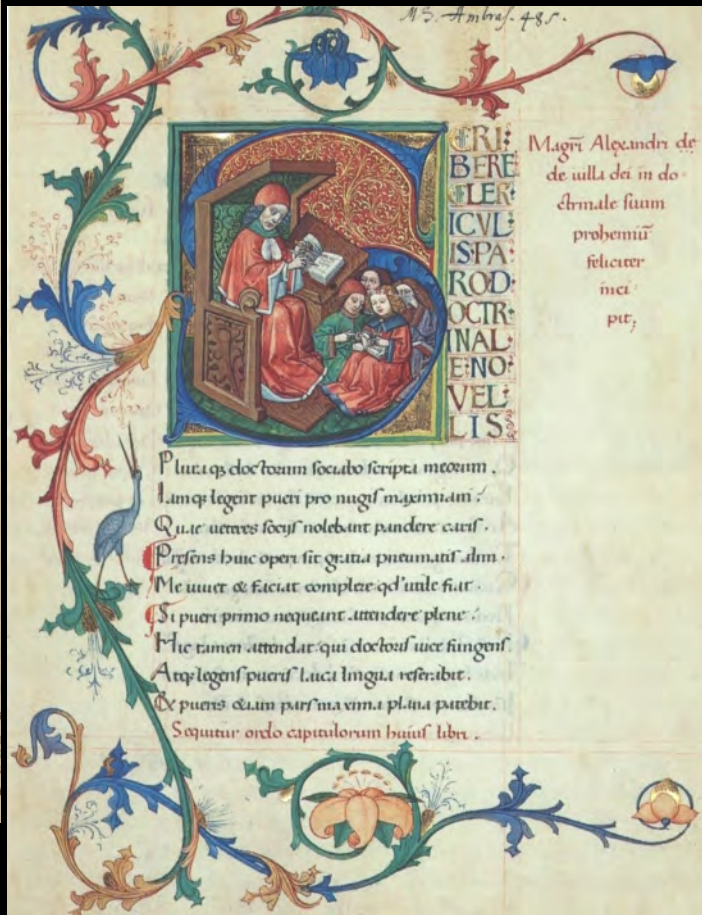 MS. Ambras. 485.
SCRI
BERE
CLER
ICVL
IS·PA
ROD
OCTR
INAL
E·NO
VEL
LIS
Magrı̄ Alexandri de
de uilla dei in do
ctrinale suum
prohemiū
feliciter
inci
pit;
Pluraqȝ doctorum sociabo scripta meorum.
Iamqȝ legent pueri pro nugis maximiani.
Quae ueteres socijs nolebant pandere caris.
Presens huic operi sit gratia pneumatis almi.
Me iuuet & faciat complere qd' utile fiat.
Si pueri primo nequeant attendere plene.
Hic tamen attendat qui doctoris uice fungens.
Atqȝ legens pueris laica lingua reserabit.
Et pueris etiam pars maxima plana patebit.
Sequitur ordo capitulorum huius libri.